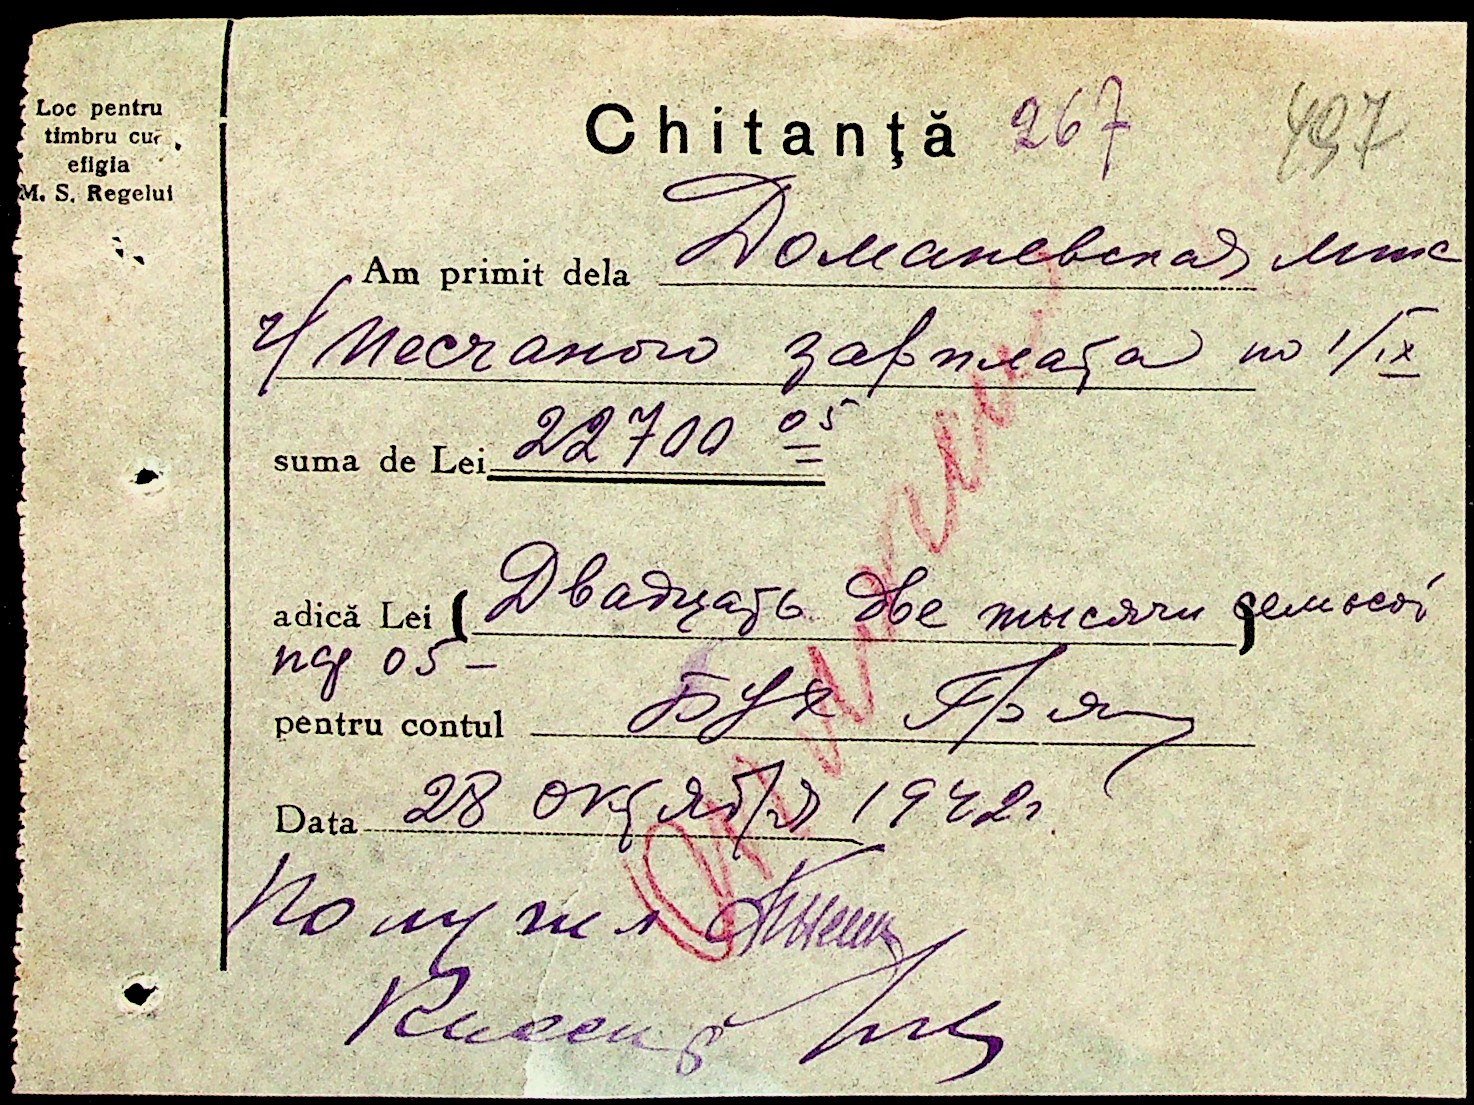 Loc pentru
timbru cu
efigia
M. S. Regelui
Chitanţă 267 497
Am primit dela Доманевская мтс
ч/ Песчаного зарплата по 1/IX
suma de Lei 22700 05
adică Lei (Двадцать две тысячи семьсот)
пф 05 –
pentru contul Бух
Data 28 октября 1942г
Получил
Кассир